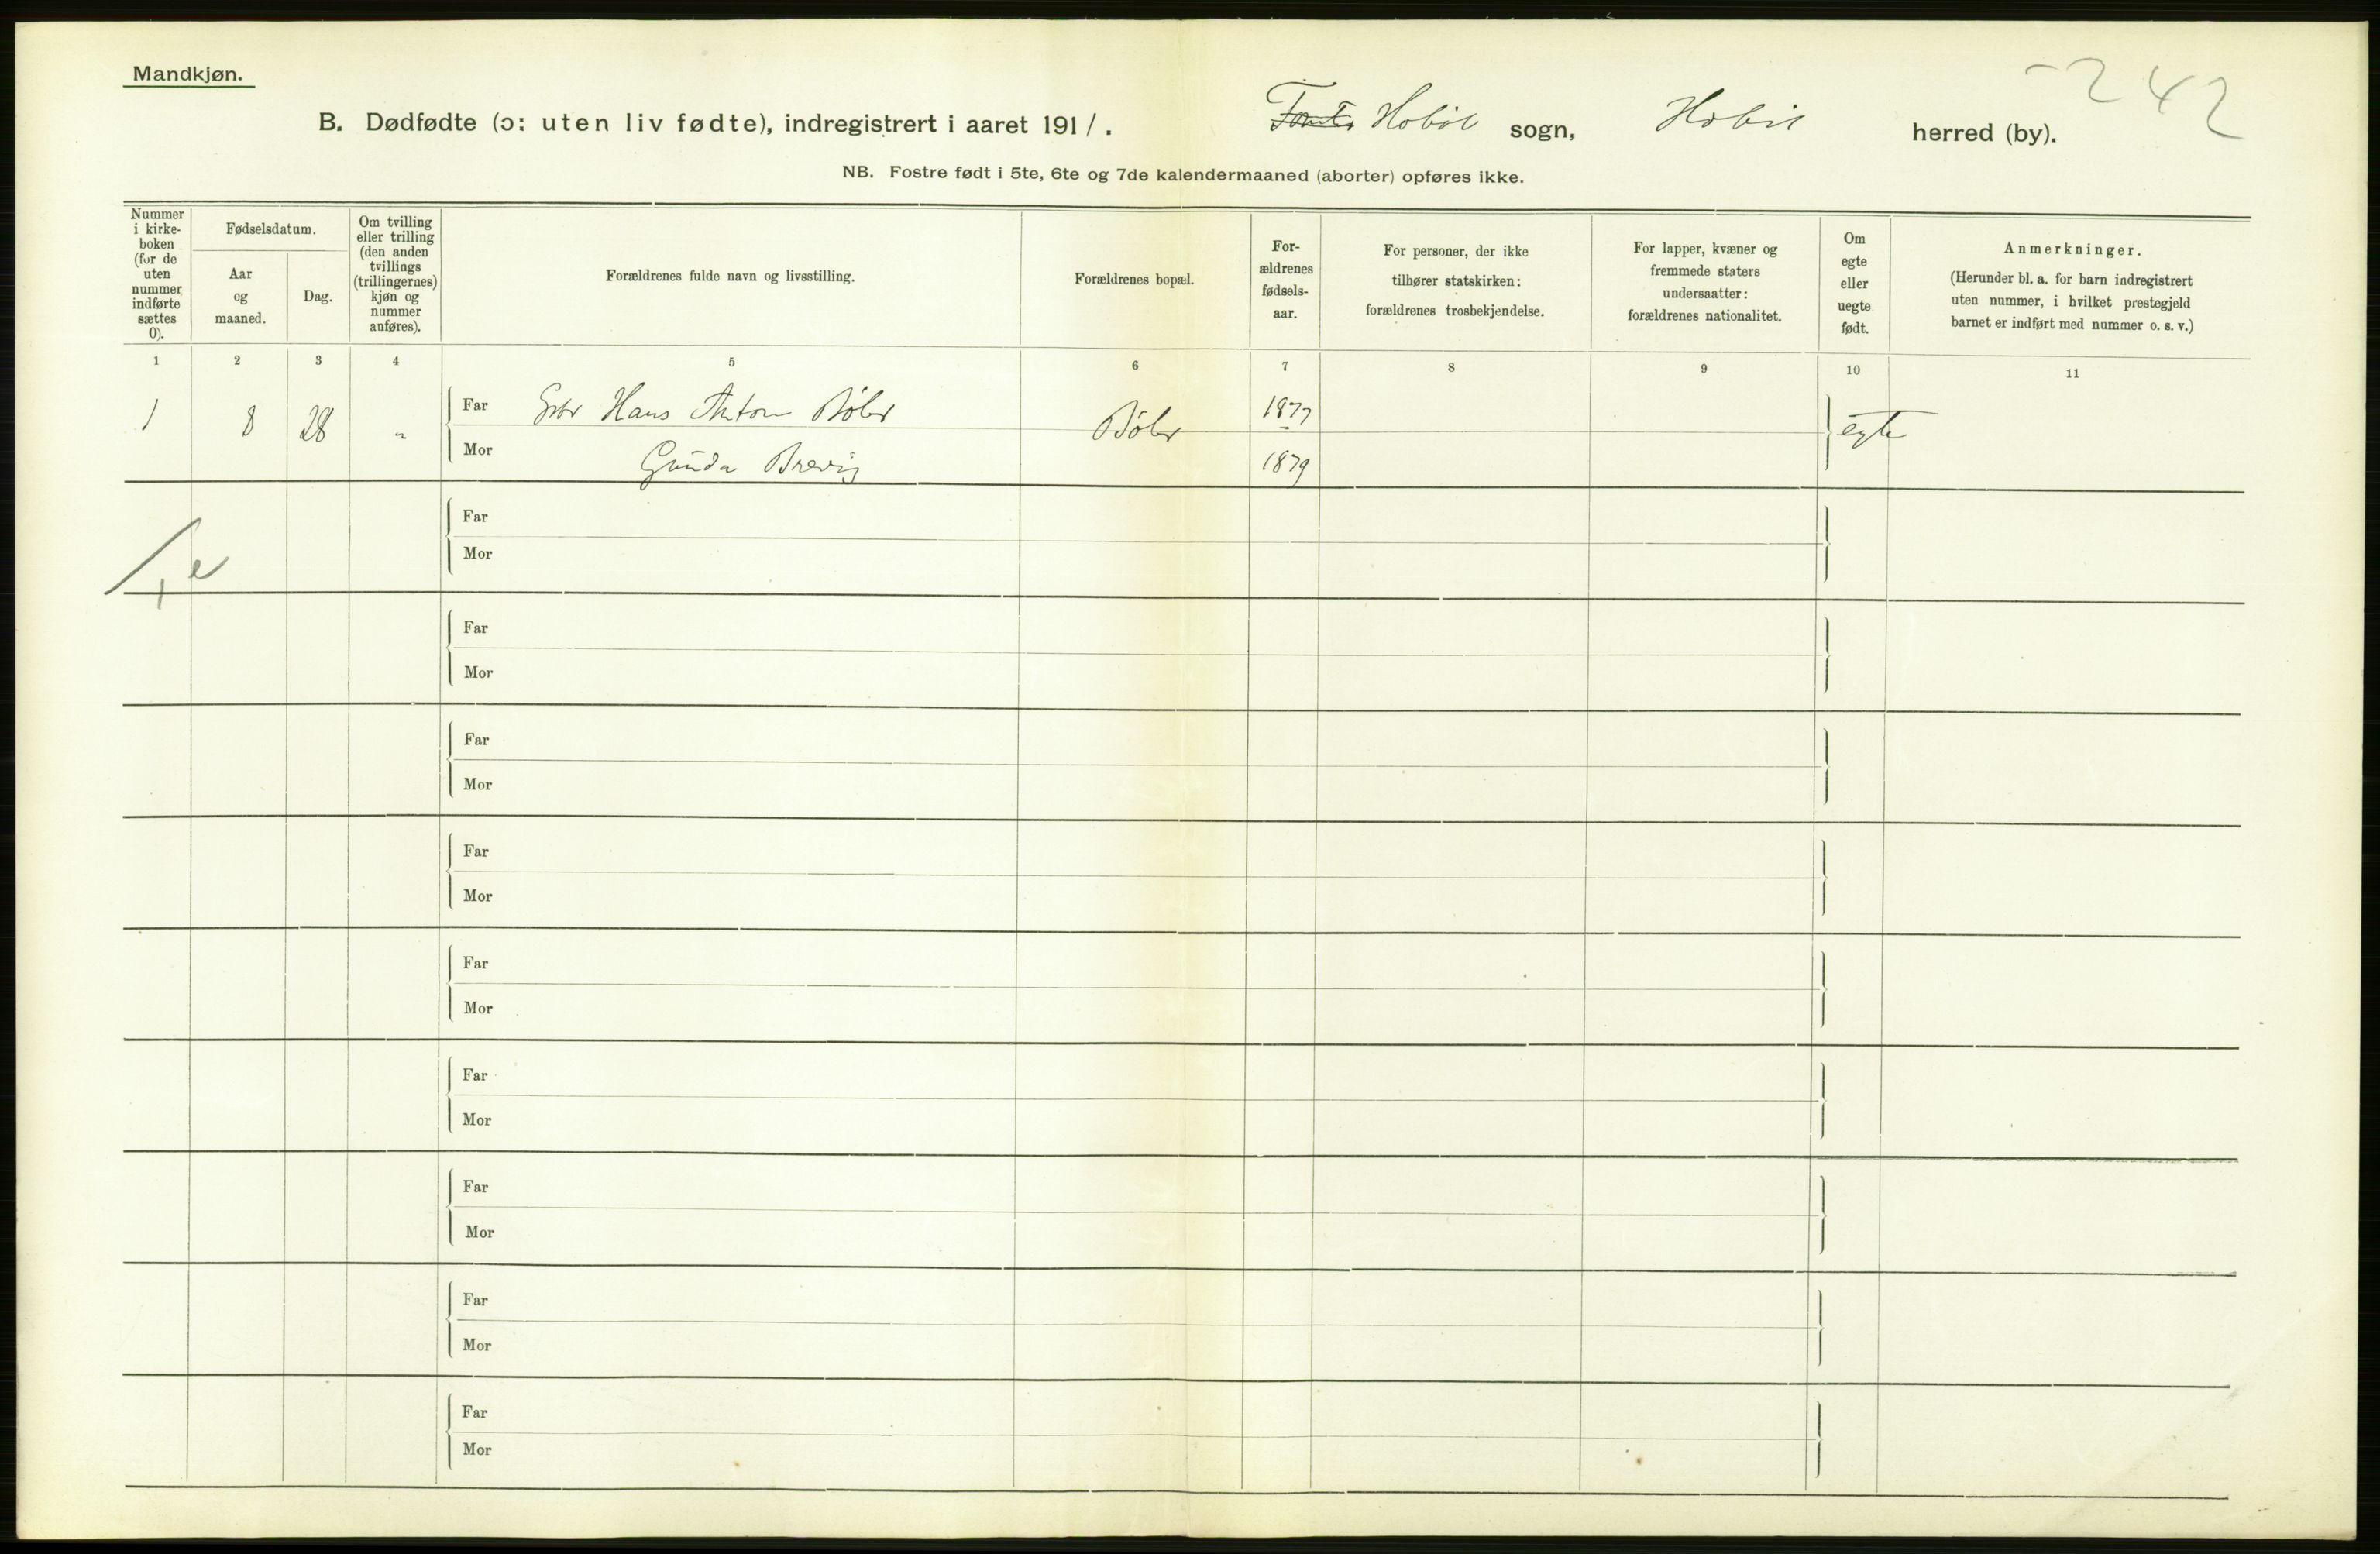 Mandkjøn.
- 242
B. Dødfødte (ɔ: uten liv fødte), indregistrert i aaret 1911. Tomt. Hobøl sogn, Hobøl herred (by).
NB. Fostre født i 5te, 6te og 7de kalendermaaned (aborter) opføres ikke.
Nummer
i kirke-
boken
(for de
uten
nummer
indførte
sættes
0).
Fødselsdatum.
Aar
og
maaned.
Dag.
Om tvilling
eller trilling
(den anden
tvillings
(trillingernes)
kjøn og
nummer
anføres).
Forældrenes fulde navn og livsstilling.
Forældrenes bopæl.
For-
ældrenes
fødsels-
aar.
For personer, der ikke
tilhører statskirken:
forældrenes trosbekjendelse.
For lapper, kvæner og
fremmede staters
undersaatter:
forældrenes nationalitet.
Om
egte
eller
uegte
født.
Anmerkninger.
(Herunder bl. a. for barn indregistrert
uten nummer, i hvilket prestegjeld
barnet er indført med nummer o. s. v.)
1 2 3 4 5 6 7 8 9 10 11
1 8 28 " Far Gbr Hans Anton Bøler Bøler 1877 egte
Mor Gunda Brevig 1879
Far
1 e
Mor
Far
Mor
Far
Mor
Far
Mor
Far
Mor
Far
Mor
Far
Mor
Far
Mor
Far
Mor